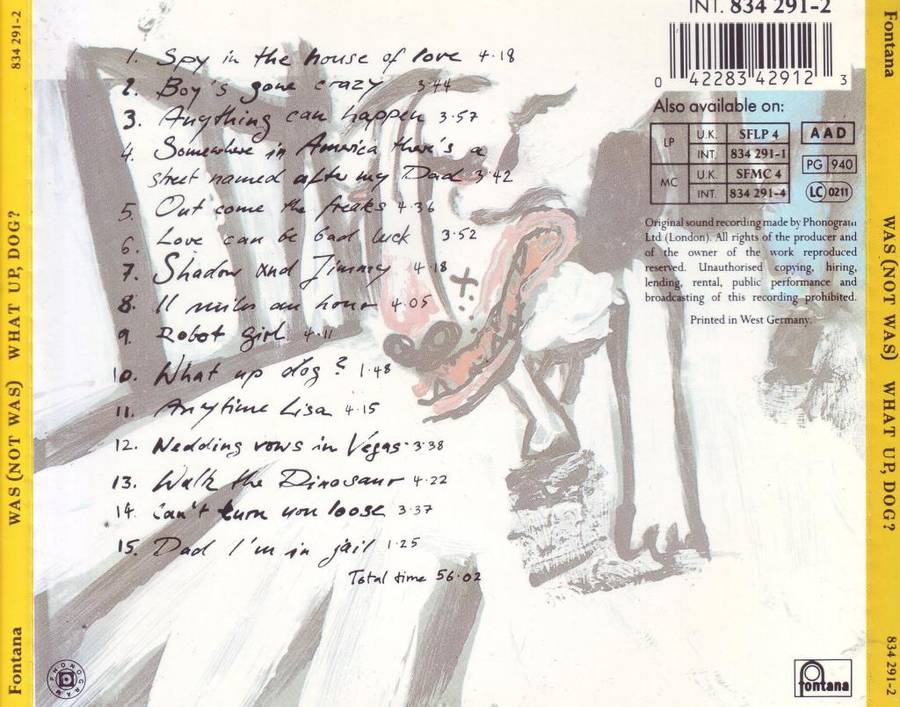 834 291-2
WAS (NOT WAS) WHAT UP, DOG?
Fontana
1. Spy in the house of love 4·18
2. Boy's gone crazy 3·44
3. Anything can happen 3·57
4. Somewhere in America there's a
street named after my Dad 3·42
5. Out come the freaks 4·36
6. Love can be bad luck 3·52
7. Shadow and Jimmy 4·18
8. 11 miles an hour 4·05
9. Robot girl 4·11
10. What up dog? 1·48
11. Anytime Lisa 4·15
12. Wedding vows in Vegas 3·38
13. Walk the Dinosaur 4·22
14. Can't turn you loose 3·37
15. Dad I'm in jail 1·25
Total time 56·02
INT. 834 291-2
0 42283 42912 3
Also available on:
LP U.K. SFLP 4
INT. 834 291-1
MC U.K. SFMC 4
INT. 834 291-4
AAD
PG 940
LC 0211
Original sound recording made by Phonogram
Ltd (London). All rights of the producer and
of the owner of the work reproduced
reserved. Unauthorised copying, hiring,
lending, rental, public performance and
broadcasting of this recording prohibited.
Printed in West Germany.
PHONOGRAM
fontana
Fontana
WAS (NOT WAS) WHAT UP, DOG?
834 291-2